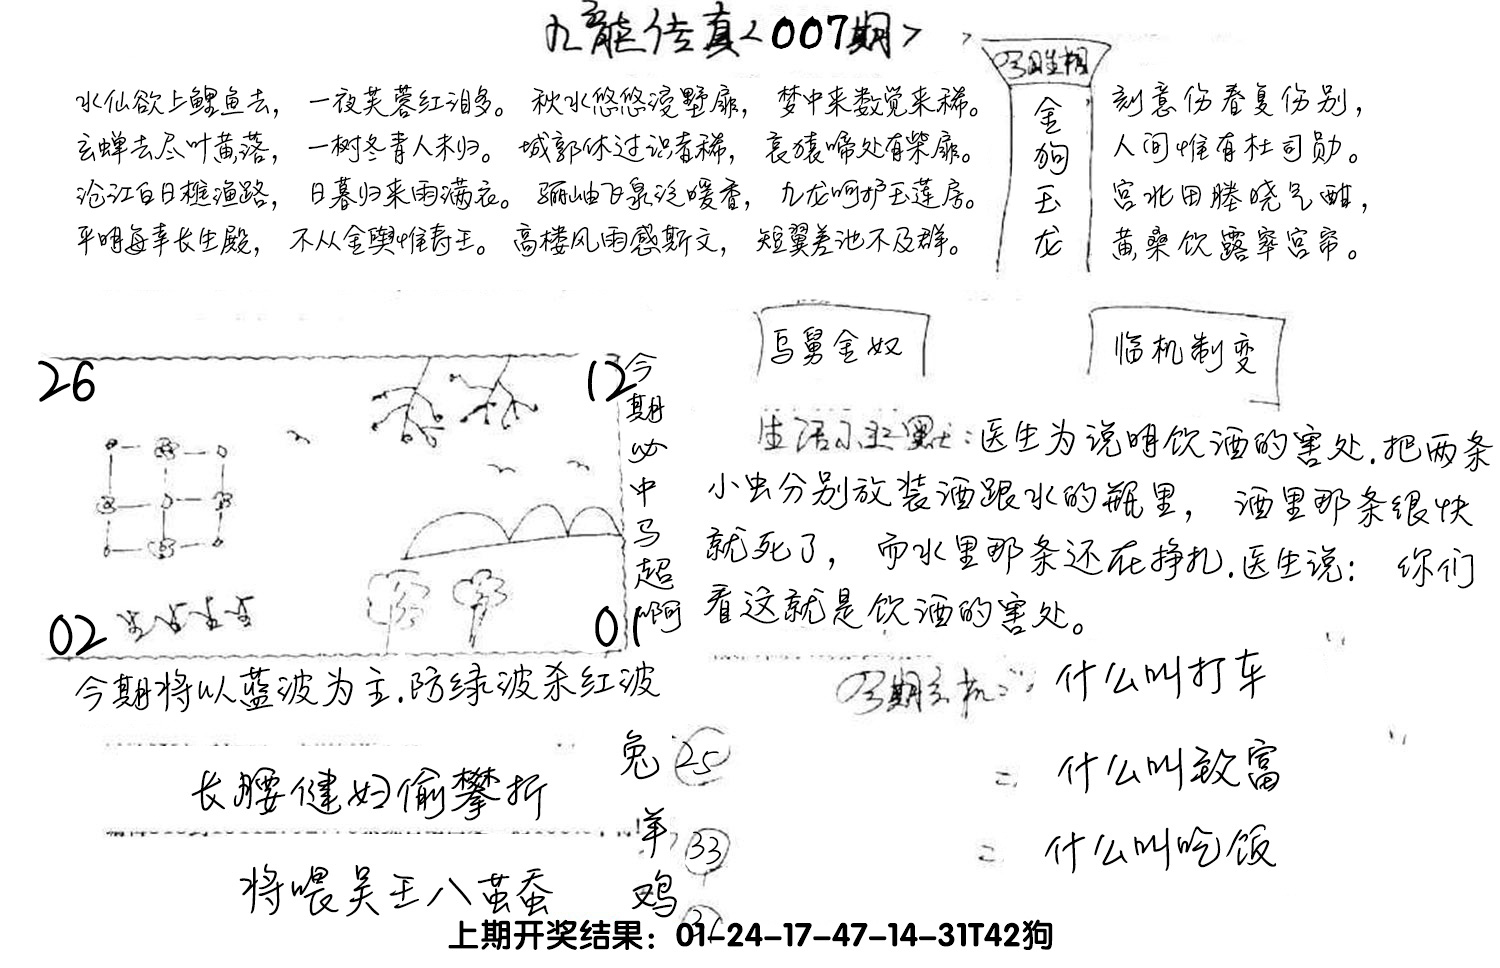 九龙传真<007期>
水仙欲上鲤鱼去，一夜芙蓉红泪多。秋水悠悠浸野扉，梦中来数觉来稀。
玄蝉去尽叶黄落，一树冬青人未归。城郭休过识者稀，哀猿啼处有柴扉。
沧江白日樵渔路，日暮归来雨满衣。骊岫飞泉泛暖香，九龙呵护玉莲房。
平明每幸长生殿，不从金舆惟寿王。高楼风雨感斯文，短翼差池不及群。
今期生相
金狗玉龙
刻意伤春复伤别，
人间惟有杜司勋。
宫北田塍晓气酣，
黄桑饮露窣宫帘。
乌舅金奴
临机制变
26
12
02
01
今期必中马超啊
生活小幽默：医生为说明饮酒的害处.把两条
小虫分别放装酒跟水的瓶里，酒里那条很快
就死了，而水里那条还在挣扎.医生说：你们
看这就是饮酒的害处。
今期将以蓝波为主.防绿波杀红波
今期玄机：什么叫打车
= 什么叫致富
= 什么叫吃饭
长腰健妇偷攀折
将喂吴王八茧蚕
兔 25
羊 33
鸡
上期开奖结果：01-24-17-47-14-31T42狗